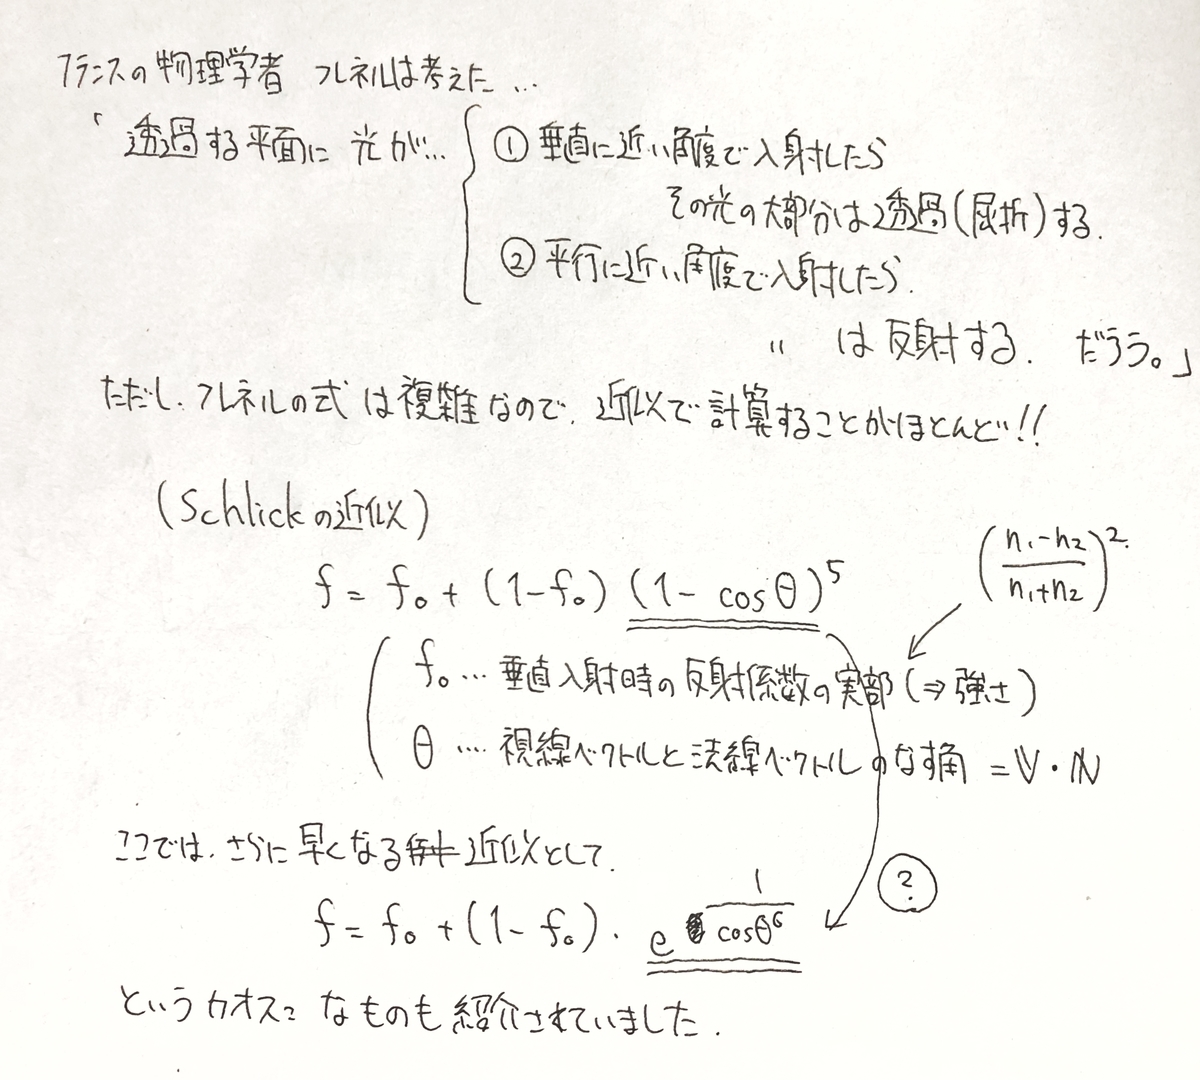 フランスの物理学者 フレネルは考えた…
「透過する平面に 光が…
① 垂直に近い角度で入射したら
その光の大部分は透過(屈折)する.
② 平行に近い角度で入射したら.
〃 は反射する. だろう。」
ただし. フレネルの式は複雑なので, 近似で計算することがほとんど!!
(Schlickの近似)
f = f₀ + (1-f₀) (1- cosθ)⁵
((n₁-n₂)/(n₁+n₂))².
f₀ … 垂直入射時の反射係数の実部 (⇒ 強さ)
θ …. 視線ベクトルと法線ベクトルのなす角 = V・N
ここでは. さらに早くなる 近似として.
f = f₀ + (1- f₀)・e^(1/cosθ⁶)
?
というカオスなものも紹介されていました.